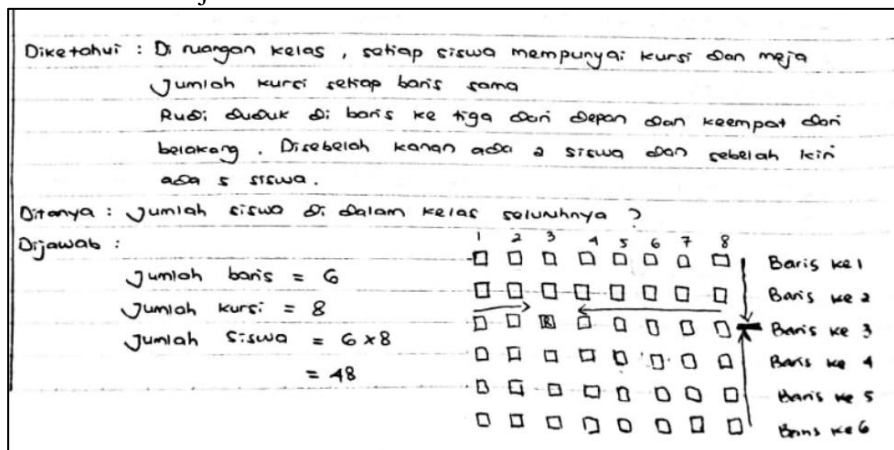 Diketahui : Di ruangan kelas , setiap siswa mempunyai kursi dan meja
Jumlah kursi setiap baris sama
Rudi duduk di baris ke tiga dari depan dan keempat dari
belakang . Disebelah kanan ada 2 siswa dan sebelah kiri
ada 5 siswa.
Ditanya : Jumlah siswa di dalam kelas seluruhnya ?
Dijawab :
Jumlah baris = 6
Jumlah kursi = 8
Jumlah siswa = 6 x 8
= 48
1 2 3 4 5 6 7 8
Baris ke 1
Baris ke 2
R Baris ke 3
Baris ke 4
Baris ke 5
Baris ke 6